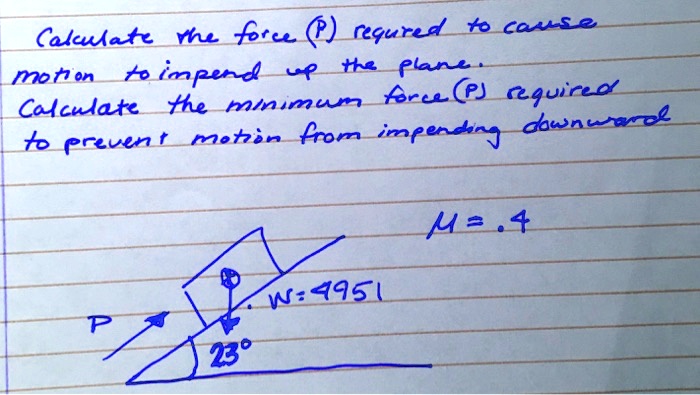 Calculate the force (P) required to cause
motion to impend up the plane.
Calculate the minimum force (P) required
to prevent motion from impending downward
μ = .4
W = 4951
P
23°